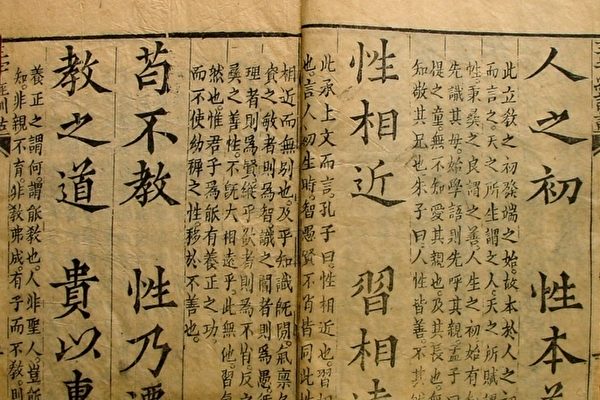 人之初　性本
此立教之初發端之始。故本於人之初
而言之。天之所生謂之人。天之所賦
性。秉彝之良謂之善。人生之初始有
先識其母。始學語則先呼其親。孟子曰
提之童。無不知愛其親也。及其長也。
知敬其兄也。朱子曰。人性皆善。不其然
性相近　習相遠
此承上文而言。孔子曰。性相近也。習
也。言人初生時。智愚賢不肖皆同此性
相近而無別也。及乎知識旣開。氣稟
資之敏者則爲智。識之闇者則爲愚。
理者則爲賢。縱乎欲者則爲不肖。反
彝之善性。不旣大相遠乎。此無他。習氣
然也。惟君子爲能有養正之功。
而不使幼穉之性移於不善也。
苟不教　性乃遷
教之道　貴以專
養正之謂何。謂能教也。人非聖人。豈能
知。非親不育。非教弗成。有子而不教。則